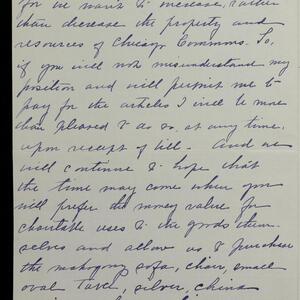 for we want to increase, rather
than decrease the property and
resources of Chicago Commons. So,
if you will not misunderstand my
position and will permit me to
pay for the articles I will be more
than pleased to do so, at any time,
upon receipt of bill. And we
will continue to hope that
the time may come when you
will prefer the money value for
charitable uses to the goods them-
selves and allow us to purchase
the mahogany sofa, chair, small
oval table, silver, china